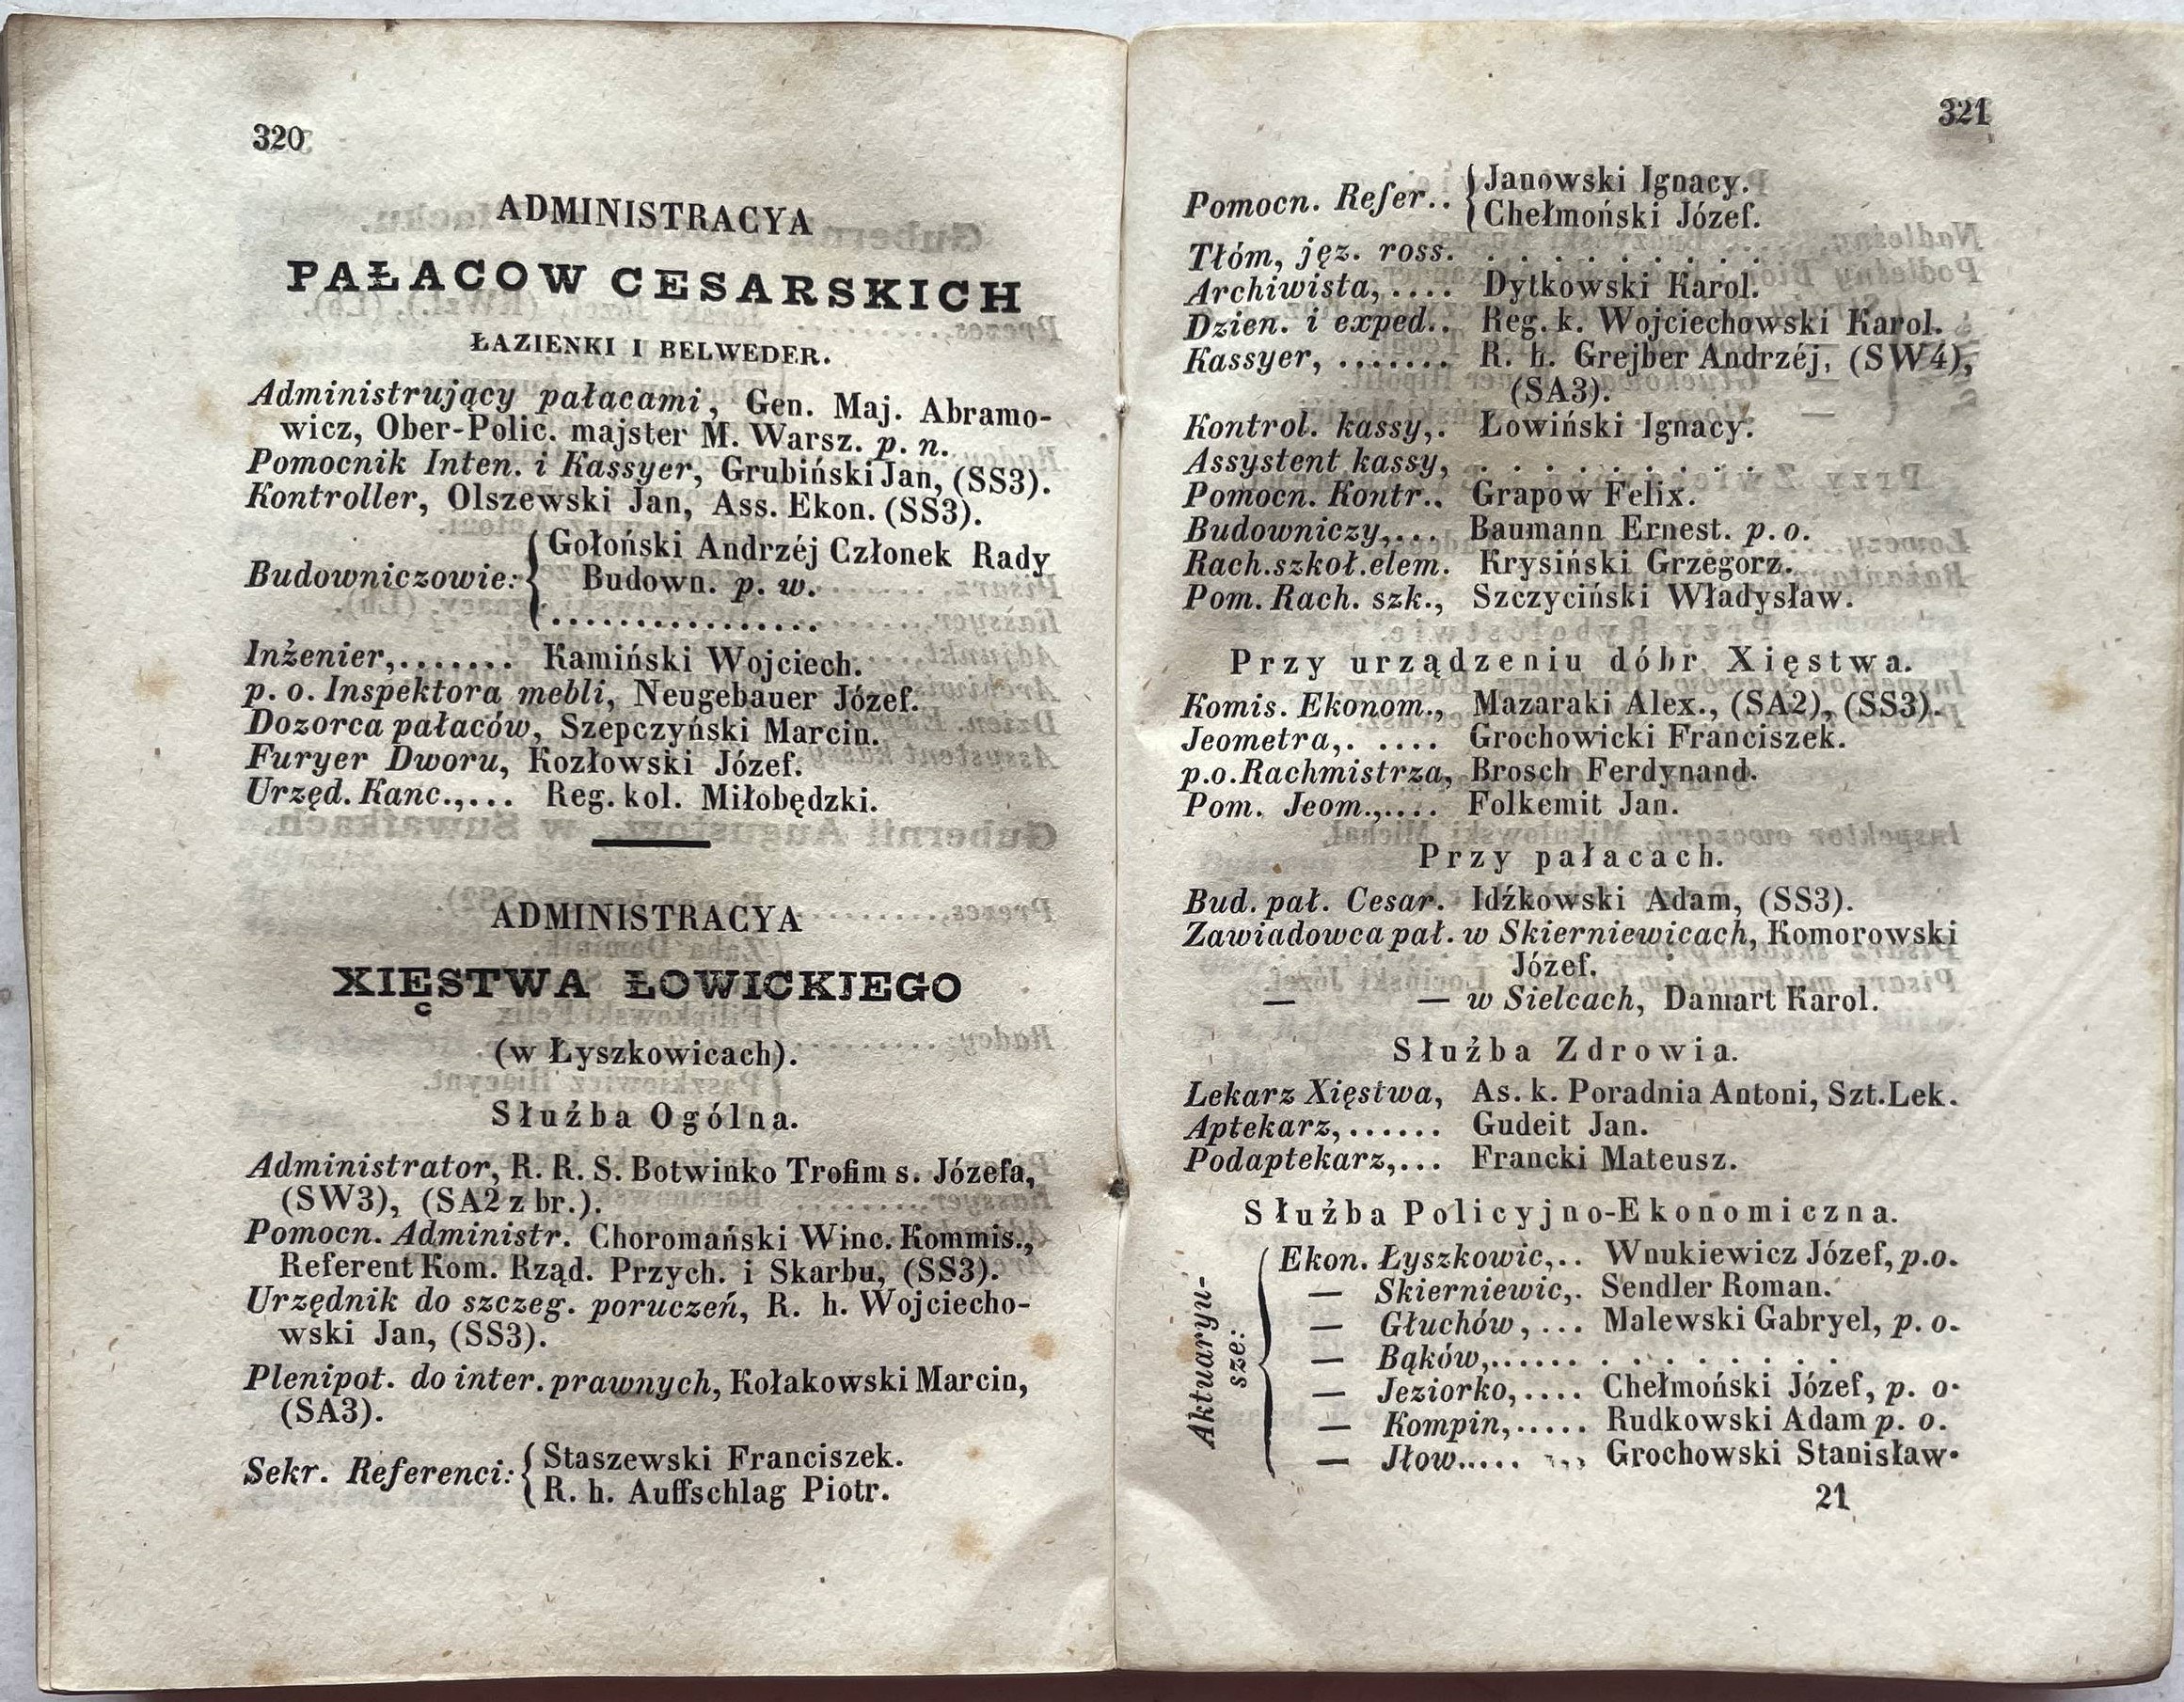 320
ADMINISTRACYA
PAŁACOW CESARSKICH
ŁAZIENKI I BELWEDER.
Administrujący pałacami, Gen. Maj. Abramo-
wicz, Ober-Polic. majster M. Warsz. p. n.
Pomocnik Inten. i Kassyer, Grubiński Jan, (SS3).
Kontroller, Olszewski Jan, Ass. Ekon. (SS3).
Budowniczowie: Gołoński Andrzéj Członek Rady
Budown. p. w.
................
Inżenier,....... Kamiński Wojciech.
p. o. Inspektora mebli, Neugebauer Józef.
Dozorca pałaców, Szepczyński Marcin.
Furyer Dworu, Kozłowski Józef.
Urzęd. Kanc.,... Reg. kol. Miłobędzki.
ADMINISTRACYA
XIĘSTWA ŁOWICKIEGO
(w Łyszkowicach).
Służba Ogólna.
Administrator, R. R. S. Botwinko Trofim s. Józefa,
(SW3), (SA2 z br.).
Pomocn. Administr. Choromański Winc. Kommis.,
Referent Kom. Rząd. Przych. i Skarbu, (SS3).
Urzędnik do szczeg. poruczeń, R. h. Wojciecho-
wski Jan, (SS3).
Plenipot. do inter. prawnych, Kołakowski Marcin,
(SA3).
Sekr. Referenci: Staszewski Franciszek.
R. h. Auffschlag Piotr.
321
Pomocn. Refer.. Janowski Ignacy.
Chełmoński Józef.
Tłóm, jęz. ross. . . . . . . . . .
Archiwista,.... Dytkowski Karol.
Dzien. i exped.. Reg. k. Wojciechowski Karol.
Kassyer, ....... R. h. Grejber Andrzéj, (SW4),
(SA3).
Kontrol. kassy,. Łowiński Ignacy.
Assystent kassy, . . . . . . . . .
Pomocn. Kontr.. Grapow Felix.
Budowniczy,... Baumann Ernest. p. o.
Rach. szkoł. elem. Krysiński Grzegorz.
Pom. Rach. szk., Szczyciński Władysław.
Przy urządzeniu dóbr Xięstwa.
Komis. Ekonom., Mazaraki Alex., (SA2), (SS3).
Jeometra,. .... Grochowicki Franciszek.
p.o. Rachmistrza, Brosch Ferdynand.
Pom. Jeom.,.... Folkemit Jan.
Przy pałacach.
Bud. pał. Cesar. Idźkowski Adam, (SS3).
Zawiadowca pał. w Skierniewicach, Komorowski
Józef.
— — w Sielcach, Damart Karol.
Służba Zdrowia.
Lekarz Xięstwa, As. k. Poradnia Antoni, Szt. Lek.
Aptekarz,...... Gudeit Jan.
Podaptekarz,... Francki Mateusz.
Służba Policyjno-Ekonomiczna.
Aktuaryu-
sze:
Ekon. Łyszkowic,.. Wnukiewicz Józef, p.o.
— Skierniewic,. Sendler Roman.
— Głuchów, ... Malewski Gabryel, p. o.
— Bąków,...... . . . . . . . .
— Jeziorko,.... Chełmoński Józef, p. o.
— Kompin,..... Rudkowski Adam p. o.
— Jłow..... ,,, Grochowski Stanisław.
21